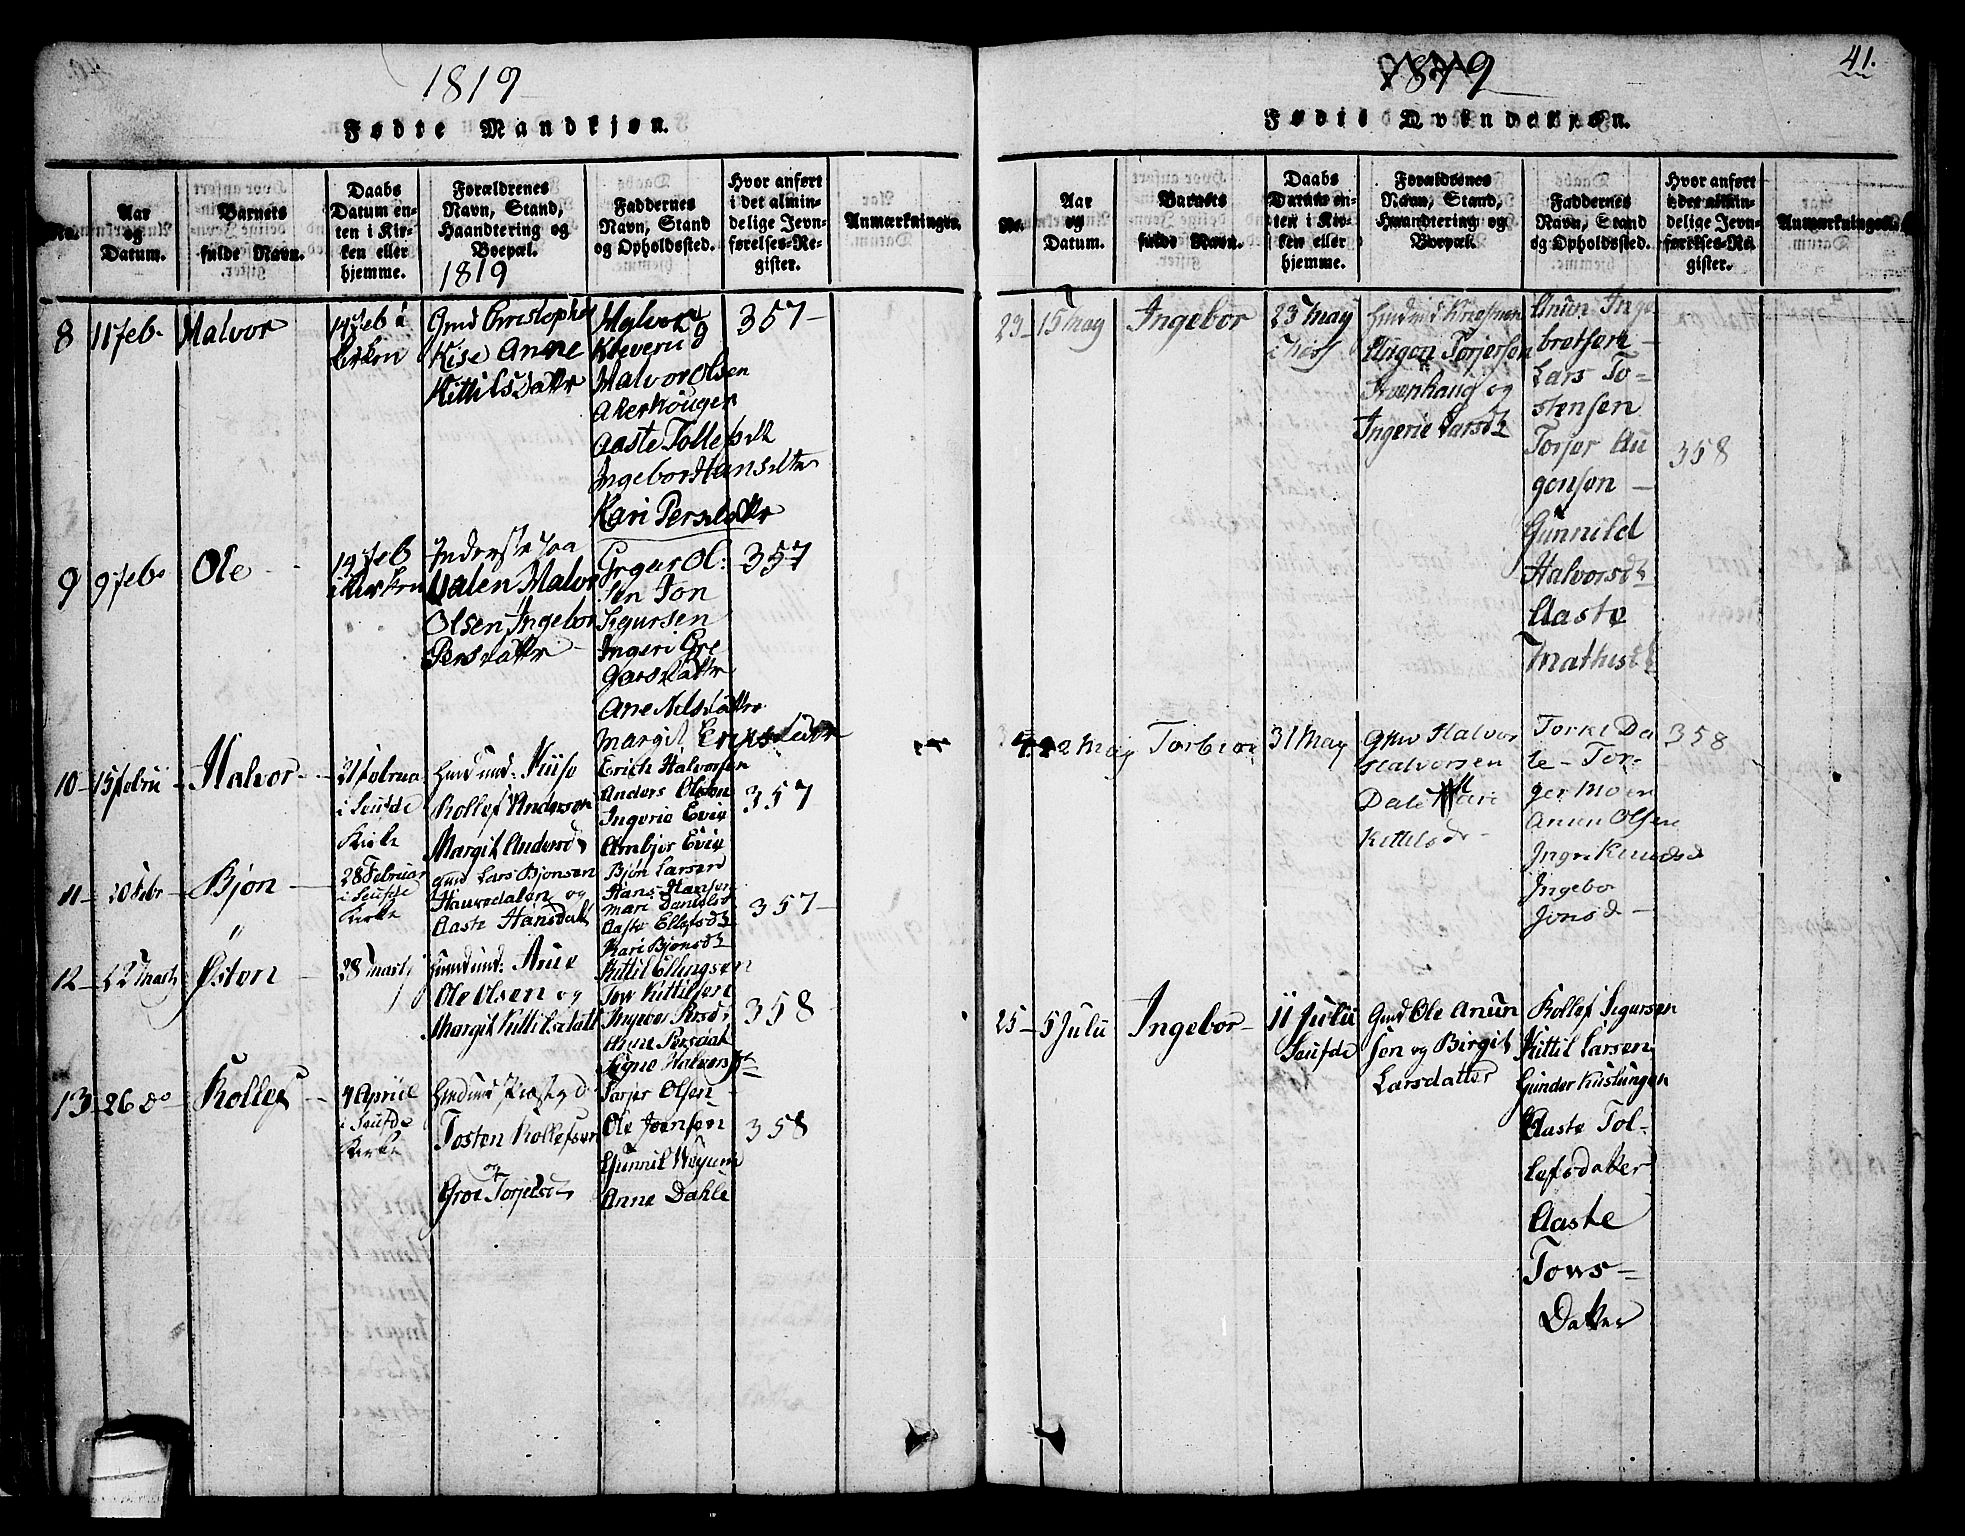 1819
Fødte Mandkjøn.
No.
Aar
og
Datum.
Barnets
fulde Navn.
Daabs
Datum en-
ten i Kir-
ken eller
hjemme.
Forældrenes
Navn, Stand,
Haandtering og
Boepæl.
1819
Faddernes
Navn, Stand
og Opholdssted.
Hvor anført
i det almin-
delige Jevn-
førelses-Re-
gister.
Anmærkninger.
8
11 feb.
Halvor
14 feb i
kirken
Gmd Christopher
Kise Anne
Kittilsdattr
Halvor
Kleverud
Halvor Olsen
Aaste
Ingebor Hansdttr
Kari Persdattr
357
9
9 feb.
Ole
14 feb
i Kirken
Halvor
Olsen Ingebor
Persdattr
Gregar Ol:
sen Jon
Sigursen
Ingeri Gre
garsdattr
Ane Nilsdattr
Margit Eriksdattr
357
10
15 febru
Halvor
21 februa
i Seufde
Kirke
Rollef Anderson
Margit Andersd
Erich Halvorsen
Anders Olsen
Ingerie Evie
Ambjør Evie
357
11
20 febr
Bjøn
28 Februar
i Seufde
Kirke
Gmd Lars Bjonsen
og
Aaste Hansdatt
Bjøn Larsen
Hans Hansen
Mari Danielsd
Aaste Ellefsdtr
Kari Bjønsdtr
357
12
22 Marty
Østen
28 marty
Ole Olsen og
Margit Kittilsdatt
Kittil Ellingsen
Tow Kittilsen
Ingebor Persd
Ane Persdatt
Signe Halvorsdtr
358
13
26 do
Rollef
4 Apriil
i Seufde
Kirke
Tosten Rollefsen
og
Groe Torjelsdtr
Torjer Olsen
Ole Joensen
Gunnil
Anne Dahle
358
41.
1819
Fødte Qvindekjøn.
No.
Aar
og
Datum.
Barnets
fulde Navn.
Daabs
Datum en-
ten i Kir-
ken eller
hjemme.
Forældrenes
Navn, Stand,
Haandtering og
Boepæl.
Faddernes
Navn, Stand
og Opholdssted.
Hvor anført
i det almin-
delige Jevn-
førelses-Re-
gister.
Anmærkninger.
23
15 May
Ingebor
23 May
Torjersen
og
Ingerie Larsdtr
Anun Inge
bretsen
Lars To-
stensen
Torjer Au
gonsen
Gunnild
Halvorsdtr
Aaste
Mathisdtr
358
22 May
Torbior
31 May
Gmd Halvor
Halvorsen
Dale Kari
Kittilsdr
Torkel Da
le Tor-
ger Moen
Anun Olsen
Ingri Knudsd
Ingebor
Jonsd
358
25
5 Julii
Ingebor
11 Julii
Seufde
Gmd Ole Anun
sen og Birgit
Larsdatter
Rollef Sigursen
Kittil Larsen
Gunder Kislungen
Aaste Tol-
lefsdatter
Aaste
Tows-
Datter